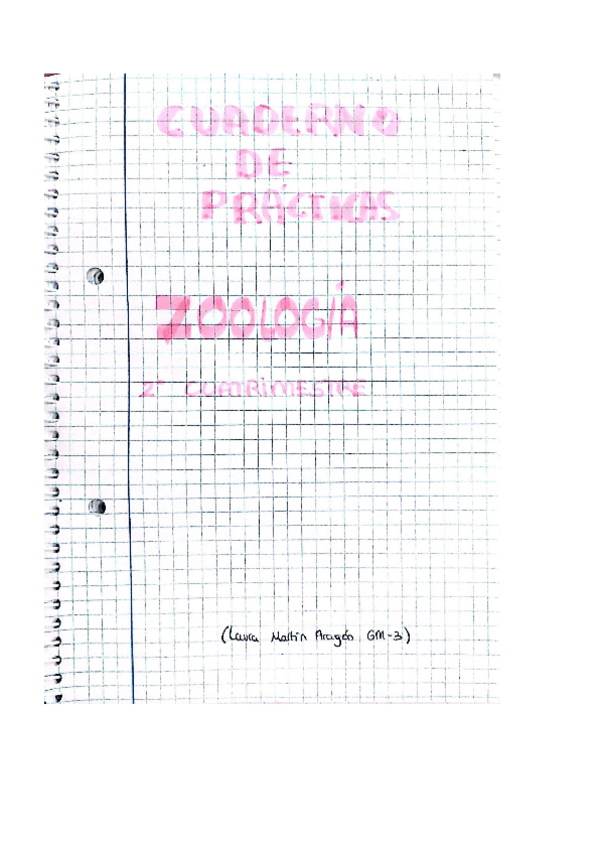 CUADERNO
DE
PRÁCTICAS
ZOOLOGÍA
2º CUATRIMESTRE
(Laura Martín Aragón GM-3)